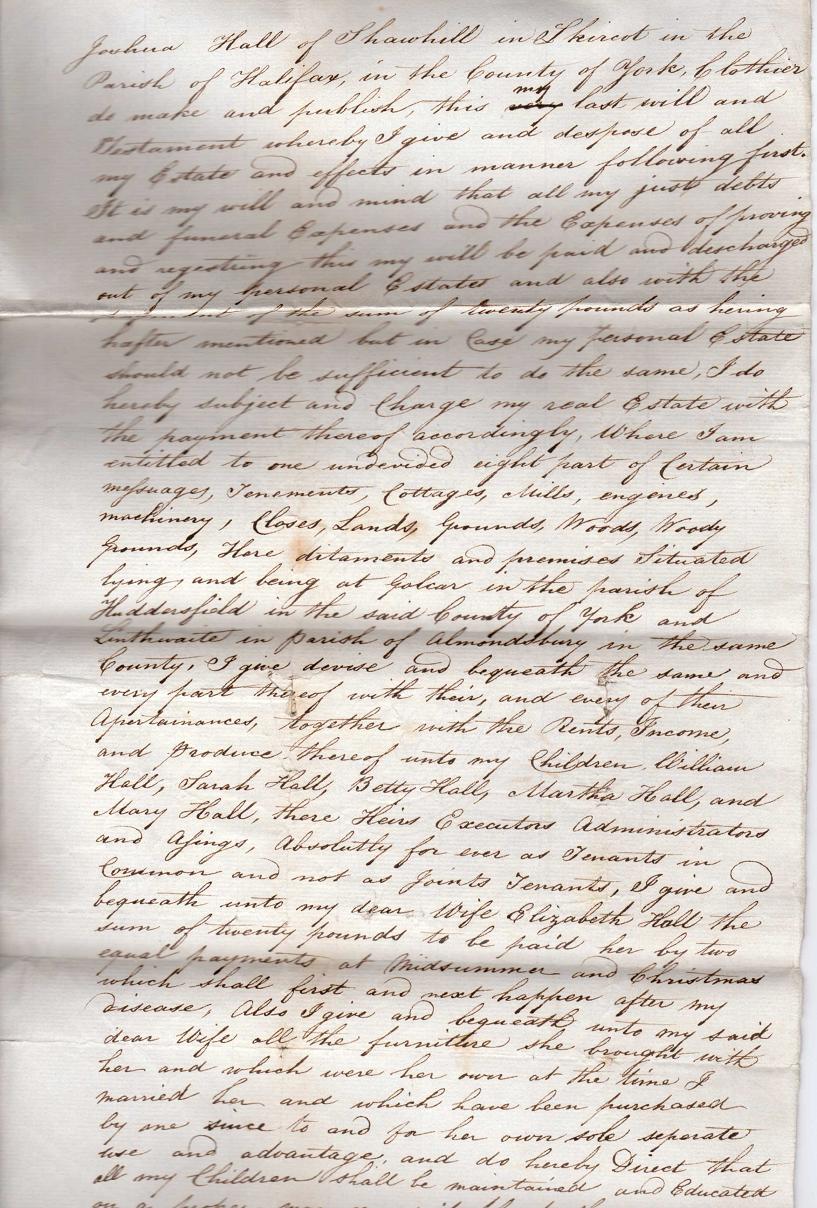 Joshua Hall of Shawhill in Skircot in the
Parish of Halifax, in the County of York, Clothier
do make and publish, this my last will and
Testament whereby I give and despose of all
my Estate and effects in manner following first.
It is my will and mind that all my just debts
and funeral Expenses and the Expenses of proving
and regestring this my will be paid and discharged
out of my personal Estates and also with the
of the sum of twenty pounds as hering
hafter mentioned but in Case my personal Estate
should not be sufficient to do the same, I do
hereby subject and Charge my real Estate with
the payment thereof accordingly, Where I am
entitled to one undevided eight part of Certain
messuages, Tenements, Cottages, Mills, engenes,
machinery, Closes, Lands, Grounds, Woods, Woody
Grounds, Here ditaments and premises Situated
lying, and being at Golcar in the parish of
Huddersfield in the said County of York and
Linthwaite in parish of Almondsbury in the same
County, I give devise and bequeath the same and
every part thereof with their, and every of their
Apertainances, together with the Rents, Income,
and Produce thereof unto my Children, William
Hall, Sarah Hall, Betty Hall, Martha Hall, and
Mary Hall, there Heirs Executors Administrators
and Asings, Absolutly for ever as Tenants in
Common and not as Joints Tenants, I give and
bequeath unto my dear Wife Elizabeth Hall the
sum of twenty pounds to be paid her by two
equal payments at Midsummer and Christmas
which shall first and next happen after my
disease, Also I give and bequeath unto my said
dear Wife all the furniture she brought with
her and which were her own at the time I
married her and which have been purchased
by me since to and for her own sole seperate
use and advantage, and do hereby Direct that
all my Children shall be maintained and Educated